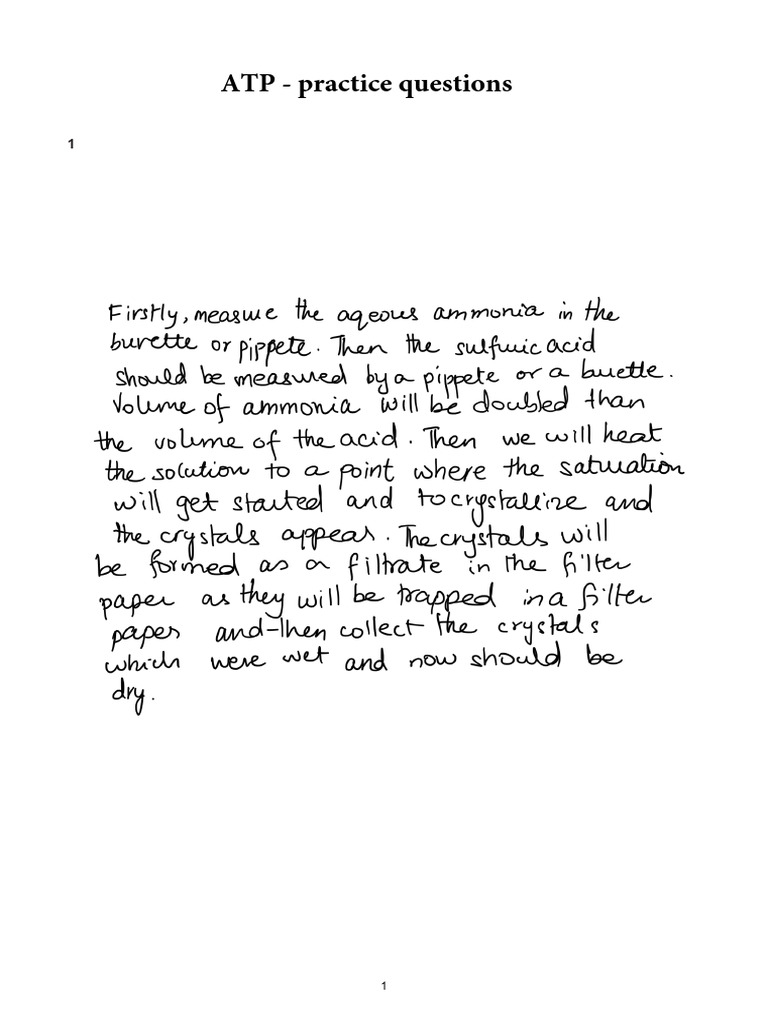 ATP - practice questions
1
Firstly, measure the aqeous ammonia in the
burette or pippete. Then the sulfuric acid
should be measured by a pippete or a burette.
Volume of ammonia will be doubled than
the volume of the acid. Then we will heat
the solution to a point where the saturation
will get started and to crystallize and
the crystals appear. The crystals will
be formed as a filtrate in the filter
paper as they will be trapped in a filter
paper and then collect the crystals
which were wet and now should be
dry.
1